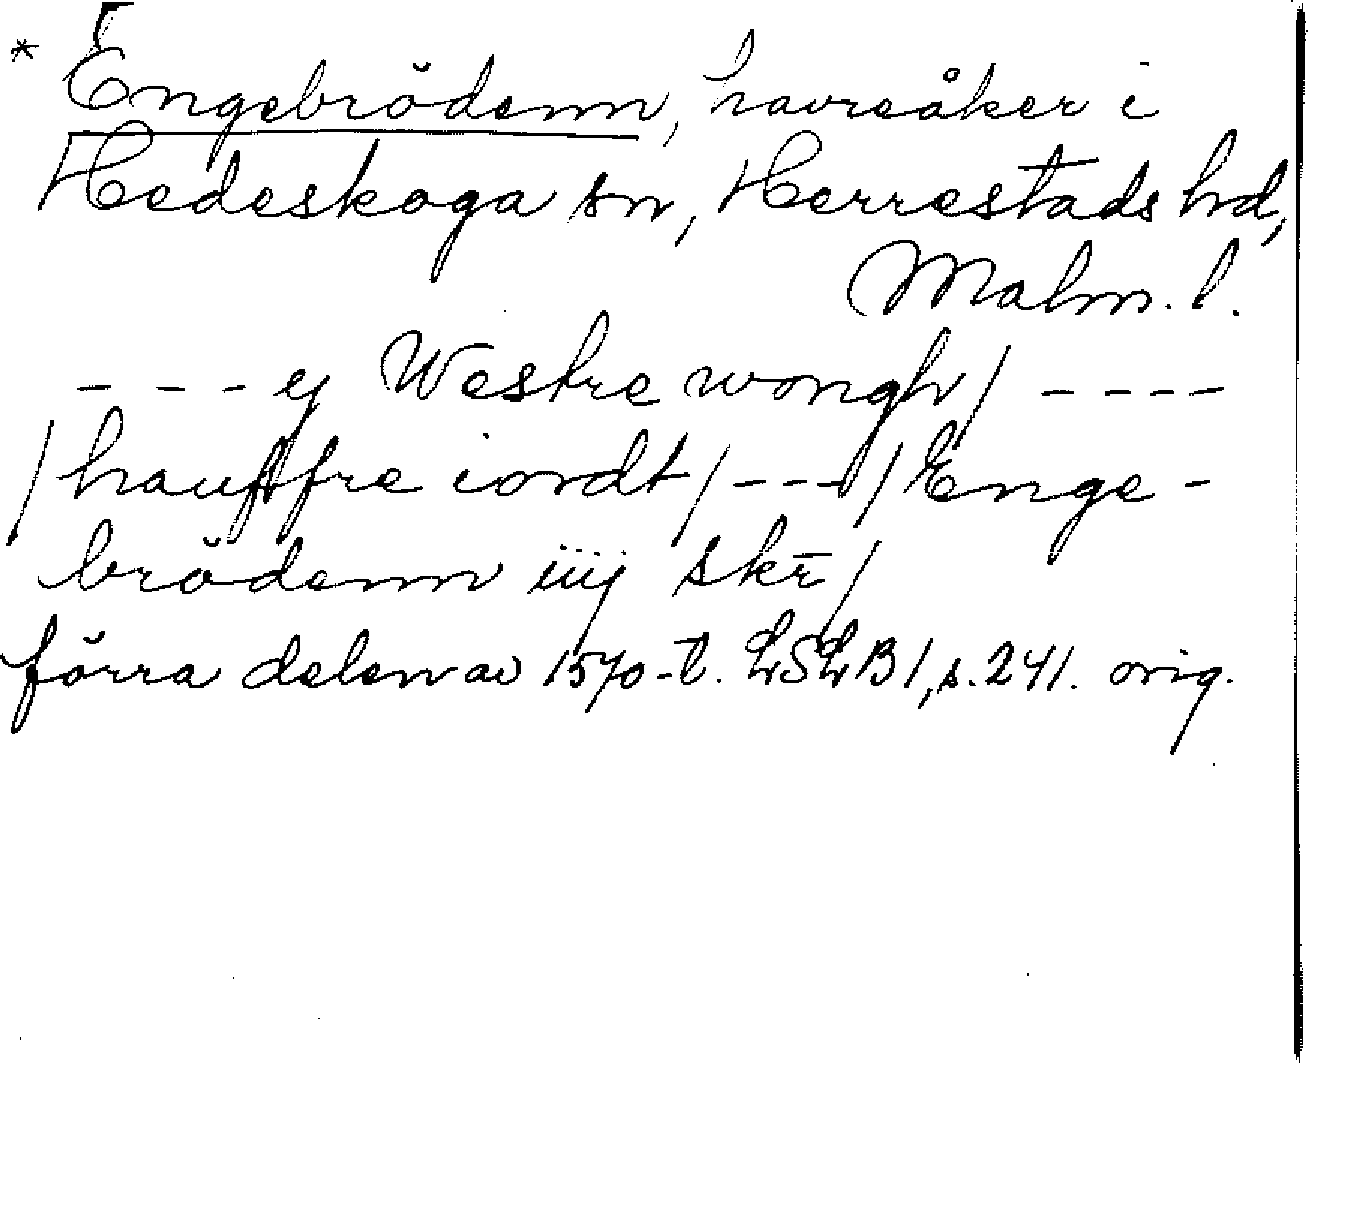 * Engebrödenn, havreåker i
Hedeskoga sn, Herrestads hd,
Malm. l.
- - - ej Westre wongh / - - - -
/ hauffre iordt / - - - / Enge-
brödenn iiij skr̄ /
förra delen av 1570-t. LSLB 1, s. 241. orig.